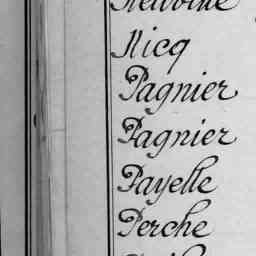 Nicq
Pagnier
Pagnier
Payelle
Perche